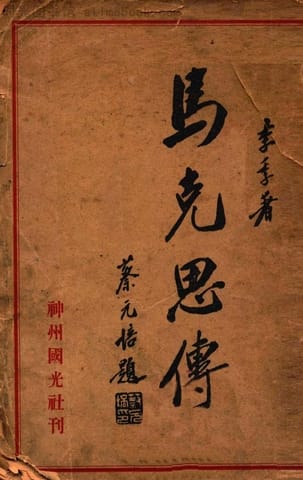 李季著
馬克思傳
蔡元培題
神州國光社刊